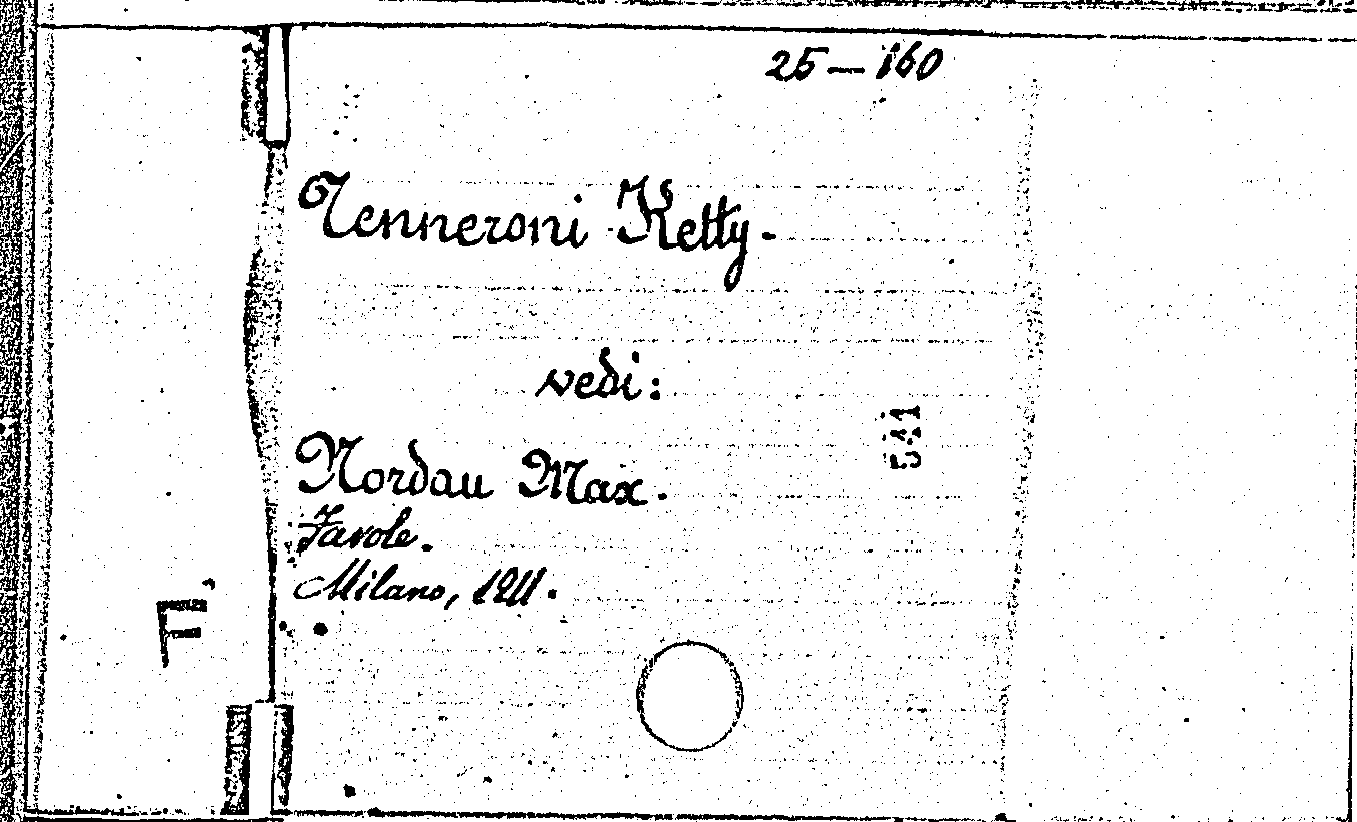 25 — 160
Tenneroni Ketty.
vedi:
541
Nordau Max.
Favole.
Milano, 1911.
F